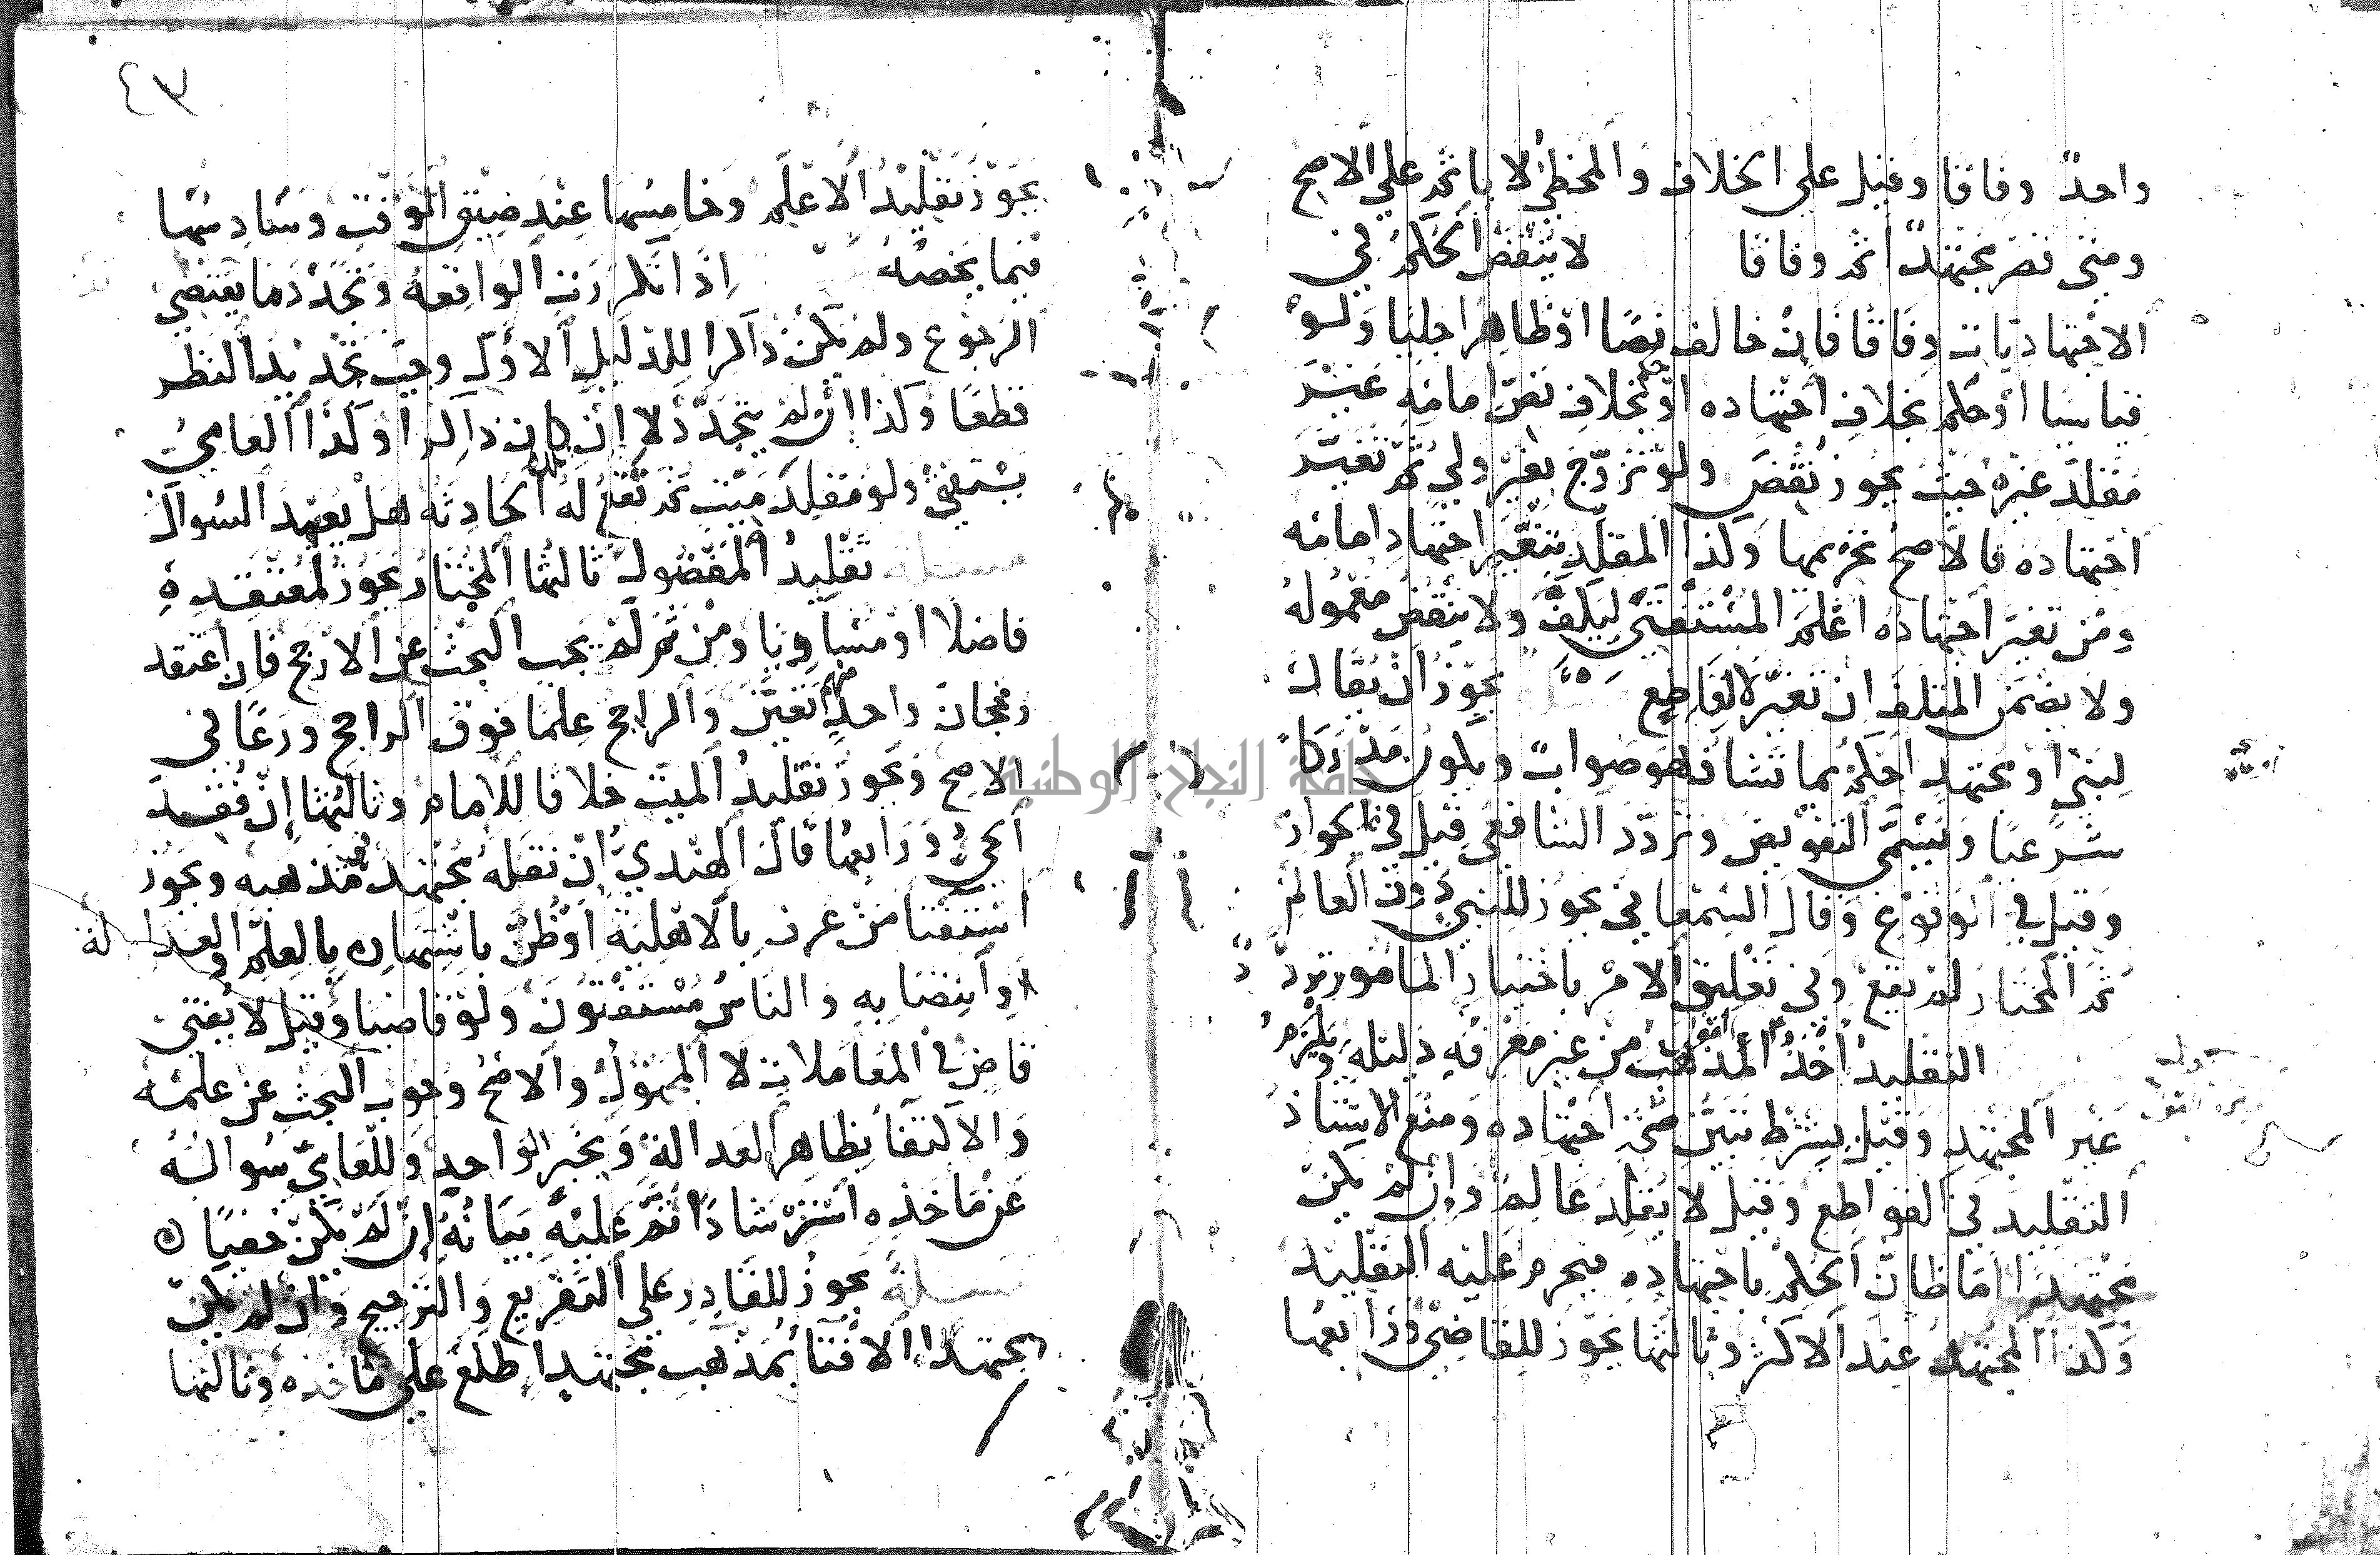 واحدٌ وفاقا وقيل على الخلاف والمخطئ لا ياثم على الاصح
ومتى قصر مجتهدٌ اثم وفاقا لا يُنْقَضُ الحُكْمُ في
الاجتهاديات وفاقا فان خالف نصًا او ظاهرا جليا ولو
قياسا او حكم بخلاف اجتهاده او حكم بخلاف نص امامه غير
مقلدٍ غيره حيث يجوز نُقضَ ولو تزوج بغير ولي ثم تغير
اجتهاده فالاصح تحريمها وكذا المقلد يتغير اجتهاد امامه
ومن تغير اجتهاده اعلم المستفتي ليكفَّ ولا ينقض معموله
ولا يضمن المتلف ان تغير لا لقاطع يجوز ان يقال
لنبي او مجتهد احكم بما تشا فهو صوابٌ ويكون مدركا
شرعيا ويسمى التفويض وتردد الشافعي قيل في الجواز
وقيل في الوقوع وقال السمعاني يجوز للنبي دون العالم
ثم المختار لم يقع وفي تعليق الامر باختيار المامور تردّدٌ
التقليدُ اخذُ المذهب من غير معرفه دليله ويلزم
غير المجتهد وقيل بشرط تبين صحة اجتهاده ومنع الاستاذ
التقليد في القواطع وقيل لا يقلد عالم وان لم يكن
مجتهدا اما ظانُّ الحكم باجتهاده فيحرم عليه التقليد
وكذا المجتهد عند الاكثر وثالثها يجوز للقاضي ورابعها
٤٣
يجوز تقليدُ الاعلم وخامسها عند ضيق الوقت وسادسها
فيما يخصه اذا تكررت الواقعه وتجدد ما يقتضي
الرجوع ولم يكن ذاكرا للدليل الاول وجب تجديد النظر
قطعا وكذا ان لم يتجدد لا ان كان ذاكرا وكذا العامي
يستفتي ولو مقلد ميت ثم تقع له تلك الحادثه هل يعيد السوال
مسئلة تقليدُ المفضول ثالثها المختار يجوز لمعتقده
فاضلا او مساويا ومن ثم لم يجب البحث عن الارجح فان اعتقد
رجحان واحد منهم تعين والراجح علما فوق الراجح ورعا في
الاصح ويجوز تقليد الميت خلافا للامام وثالثها ان فُقِدَ
الحي ورابعها قال الهندي ان نقله مجتهد في مذهبه ويجوز
استفتا من عرف بالاهلية او ظن باشتهاره بالعلم والعدالة
وانتصابه والناس مستفتون ولو قاضيا وقيل لا يفتي
قاض في المعاملات لا المجهول والاصح وجوب البحث عن علمه
والاكتفا بظاهر العدالة وبخبر الواحد وللعامي سواله
عن ماخذه استرشادا ثم عليه بيانه ان لم يكن خفيا
مسئلة يجوز للقادر على التفريع والترجيح وان لم يكن
مجتهدا الافتا بمذهب مجتهد اطلع على ماخذه وثالثها
جامعة النجاح الوطنية